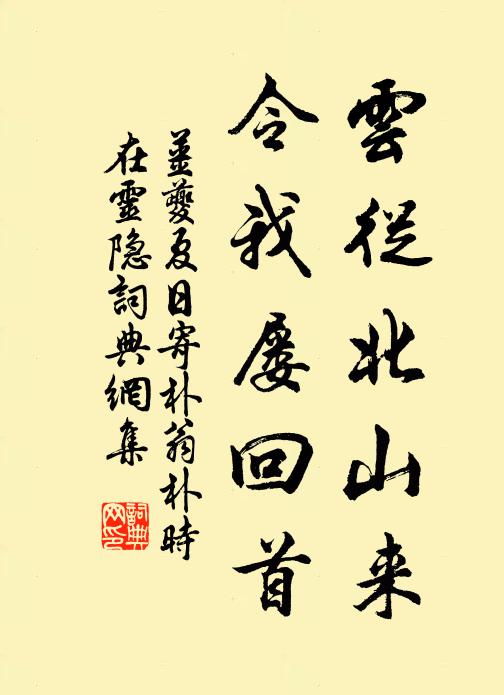 雲從北山来
令我屡回首
姜夔夏日寄朴翁朴時
在靈隐詞典網集
詞典
网印